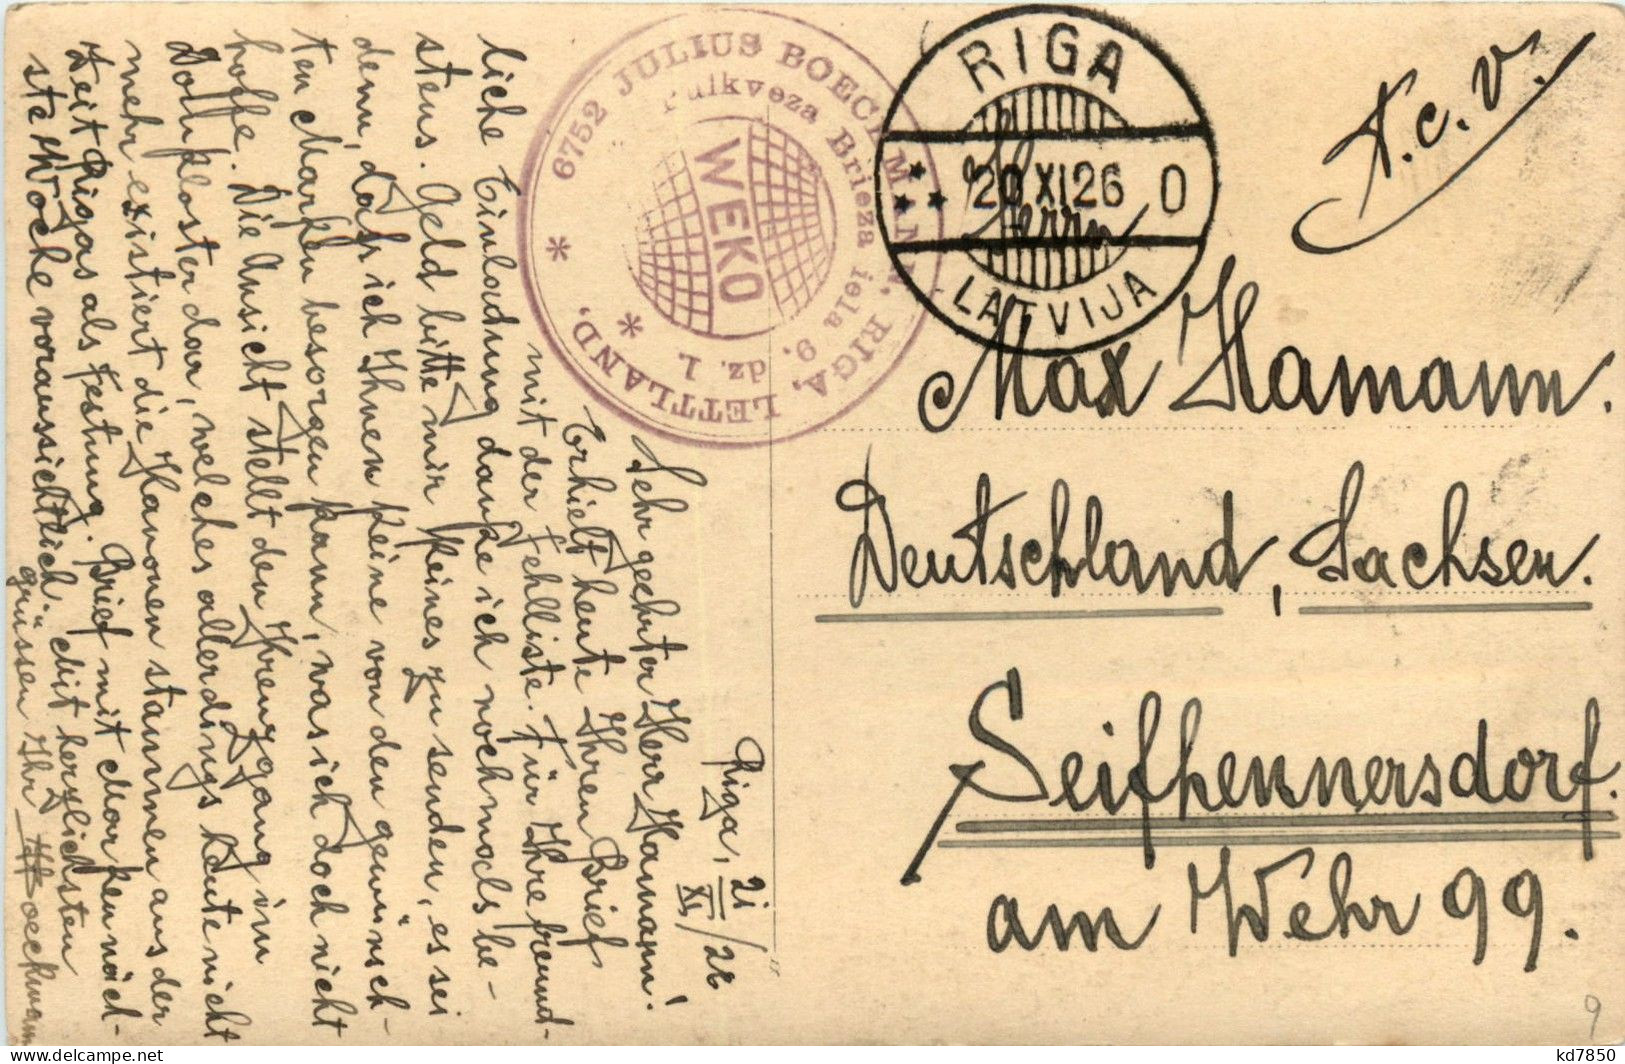 RIGA
20 XI 26 0
LATVIJA
* 6752 JULIUS BOECKMANN, RIGA, LETTLAND. *
Pulkveza Brieza iela 9. dz. 1.
WEKO
T.c.v.
Herrn
Max Hamann.
Deutschland, Sachsen.
Seifhennersdorf.
am Wehr 99.
Riga, 21/XI/26
Sehr geehrter Herr Hamann!
Erhielt heute Ihren Brief
mit der Fehlliste. Für Ihre freund-
liche Einladung danke ich nochmals be-
stens. Geld bitte mir keines zu senden, es sei
denn, dass ich Ihnen keine von den gewünsch-
ten Marken besorgen kann, was ich doch nicht
hoffe. Die Ansicht stellt den Kreuzgang im
Domkloster dar, welches allerdings heute nicht
mehr existiert die Kanonen stammen aus der
Zeit Rigas als Festung. Brief mit Marken näch-
ste Woche voraussichtlich. Mit herzlichsten
grüssen Ihr Boeckmann
9
kd7850